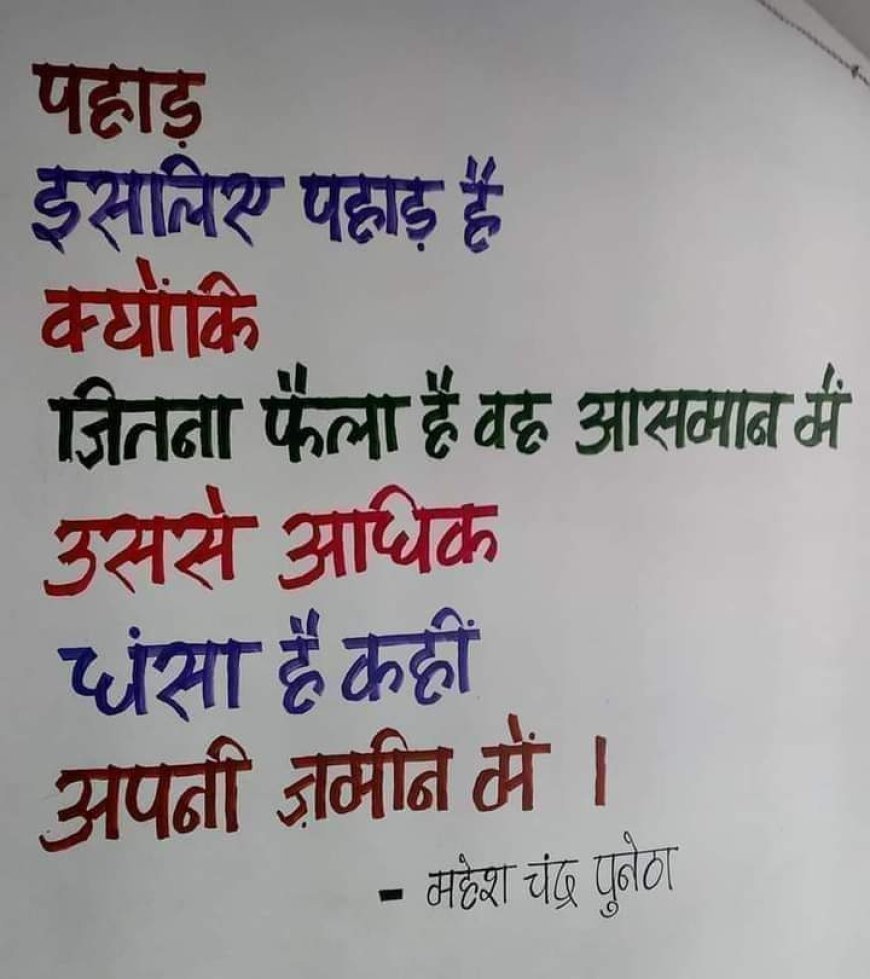 पहाड़
इसलिए पहाड़ है
क्योंकि
जितना फैला है वह आसमान में
उससे अधिक
धंसा है कहीं
अपनी ज़मीन में ।
- महेश चंद्र पुनेठा